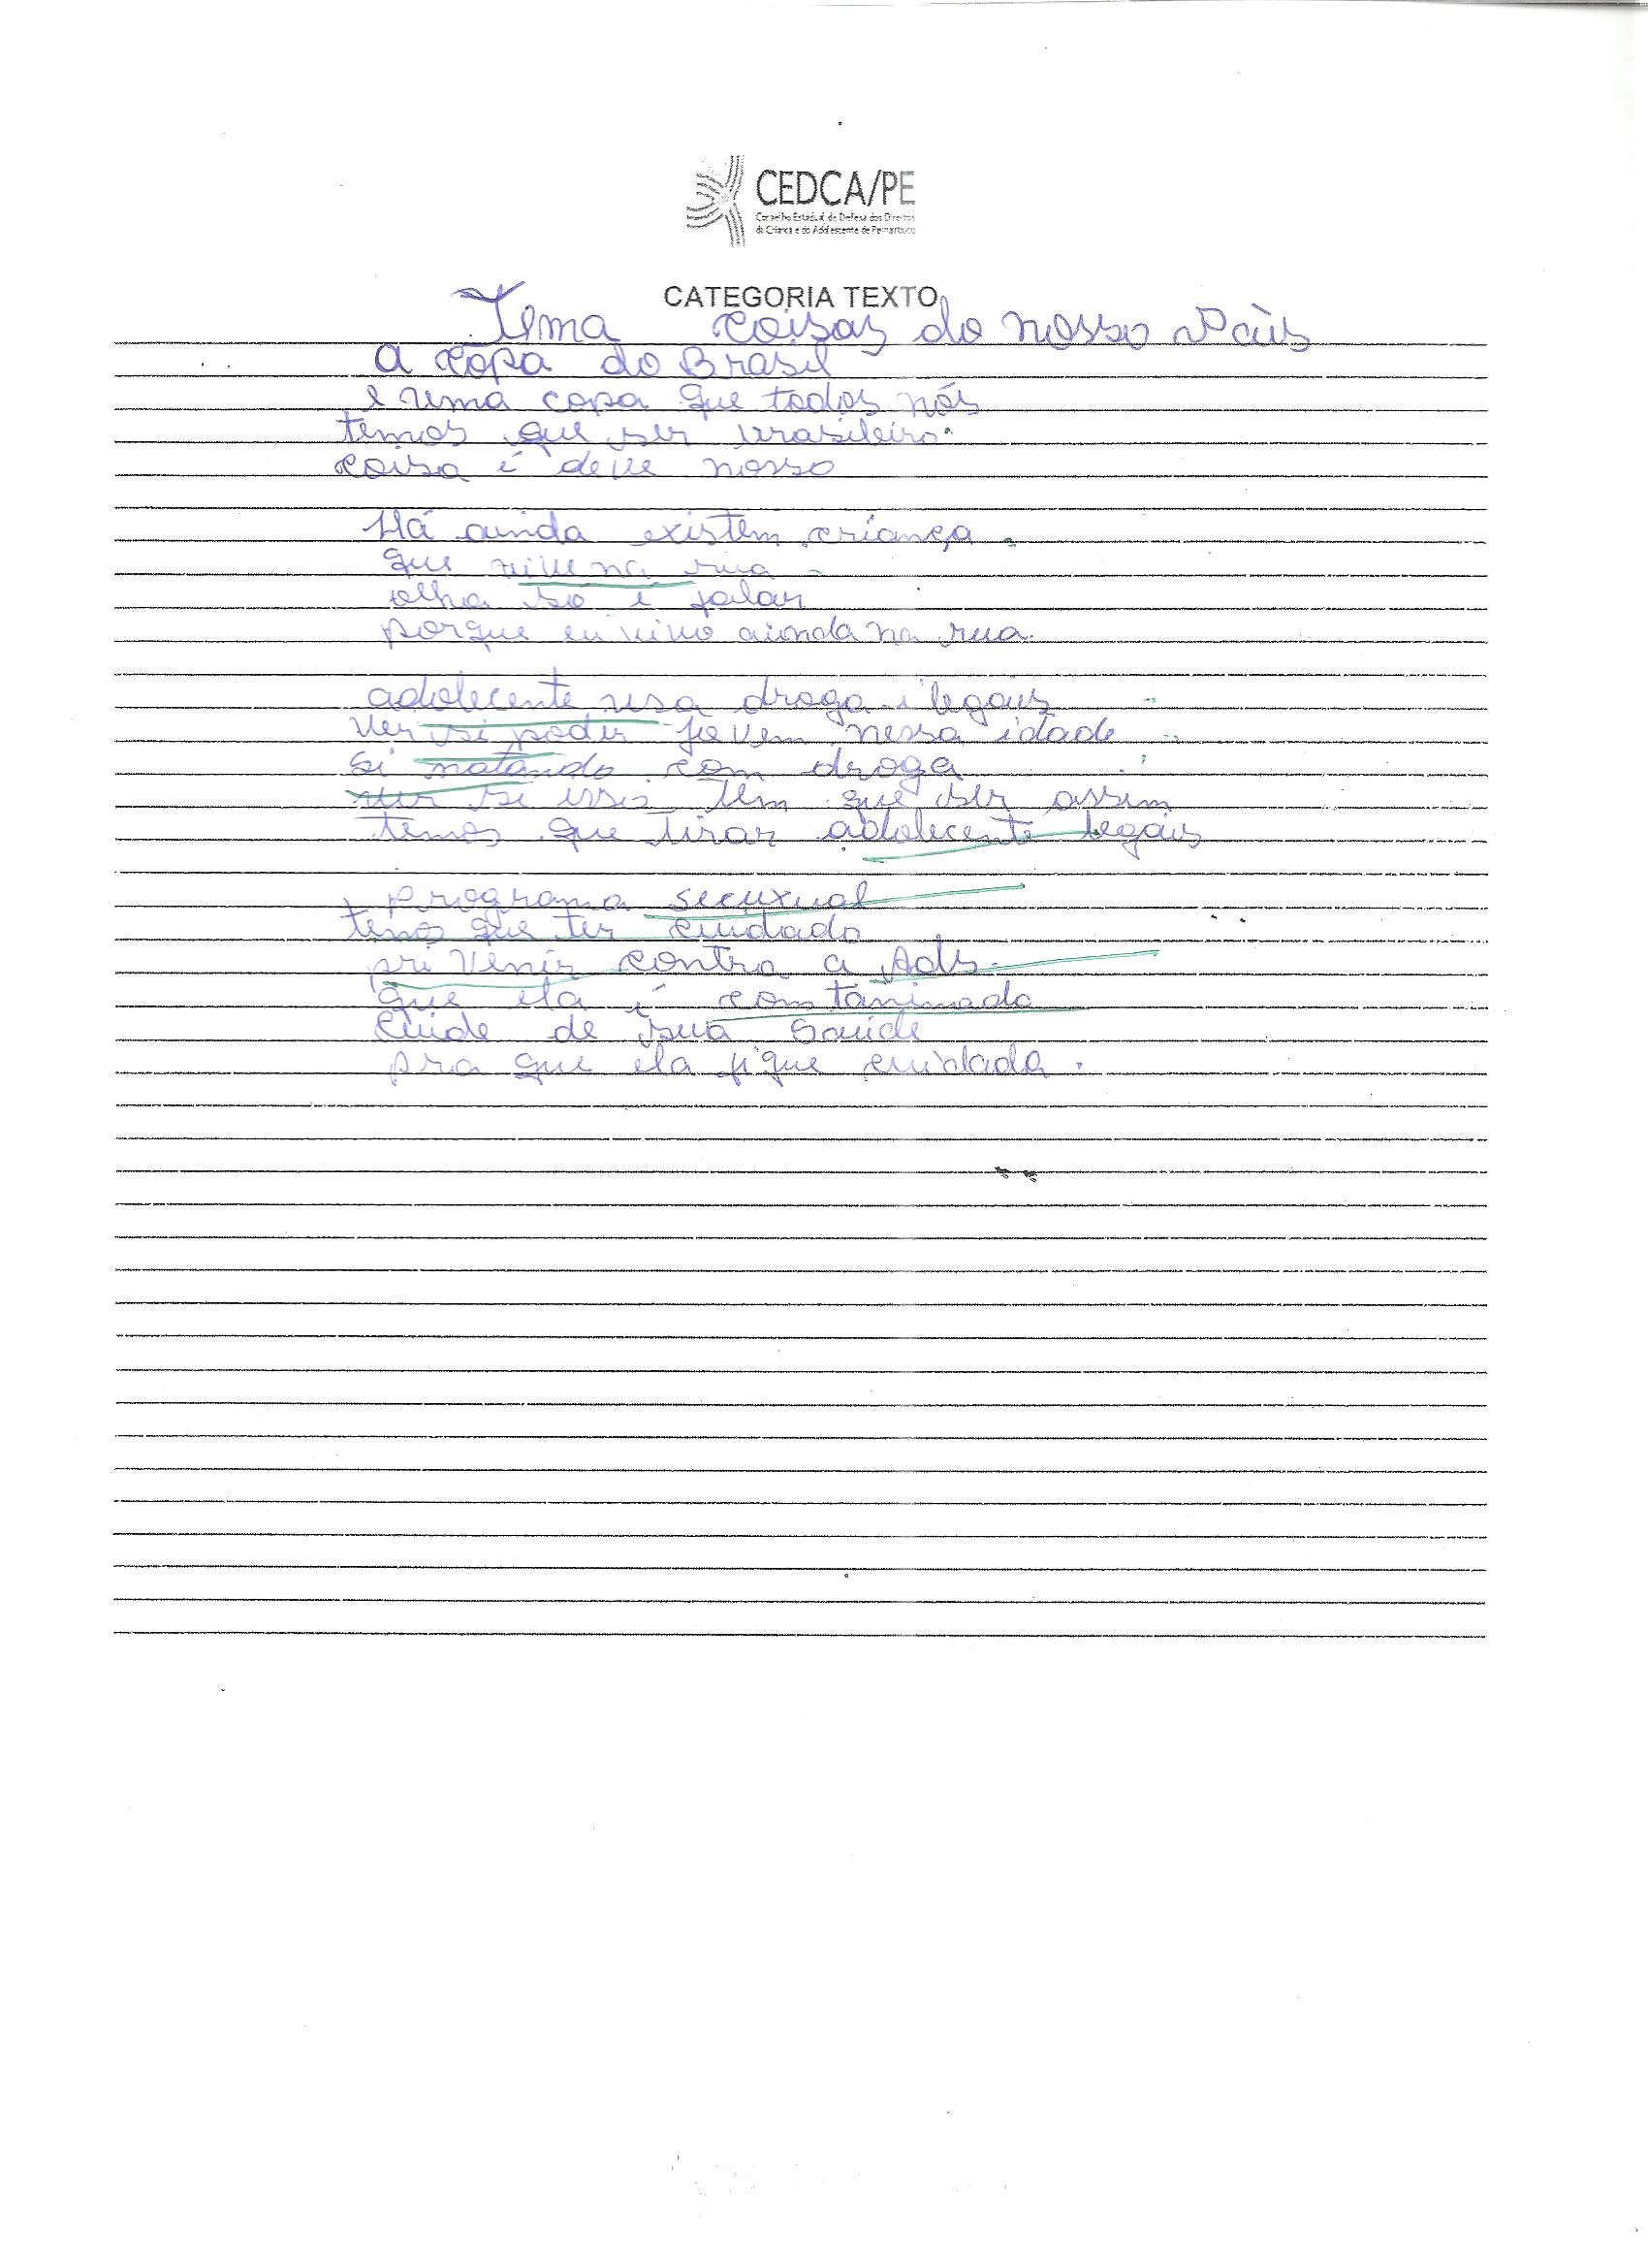 CEDCA/PE
Conselho Estadual de Defesa dos Direitos
da Criança e do Adolescente de Pernambuco
CATEGORIA TEXTO
Tema coisas do nosso Pàis
a copa do Brasil
e uma copa que todos nós
temos que ser brasileiro
coisa é deve nosso
Há ainda existem criança
que vive na rua
olha so é falar
porque eu vivo aionda na rua.
adolecente usa droga ilegais
ver si poder jovem nessa idade
si matando com droga
ver si isso tem que ser assim
temos que tirar adolecente legais
programa secuxual
temos que ter cuidado
pri venir contra a Ads.
que ela é comtanimada
Cuide de sua Saúde
pra que ela fique cuidada.